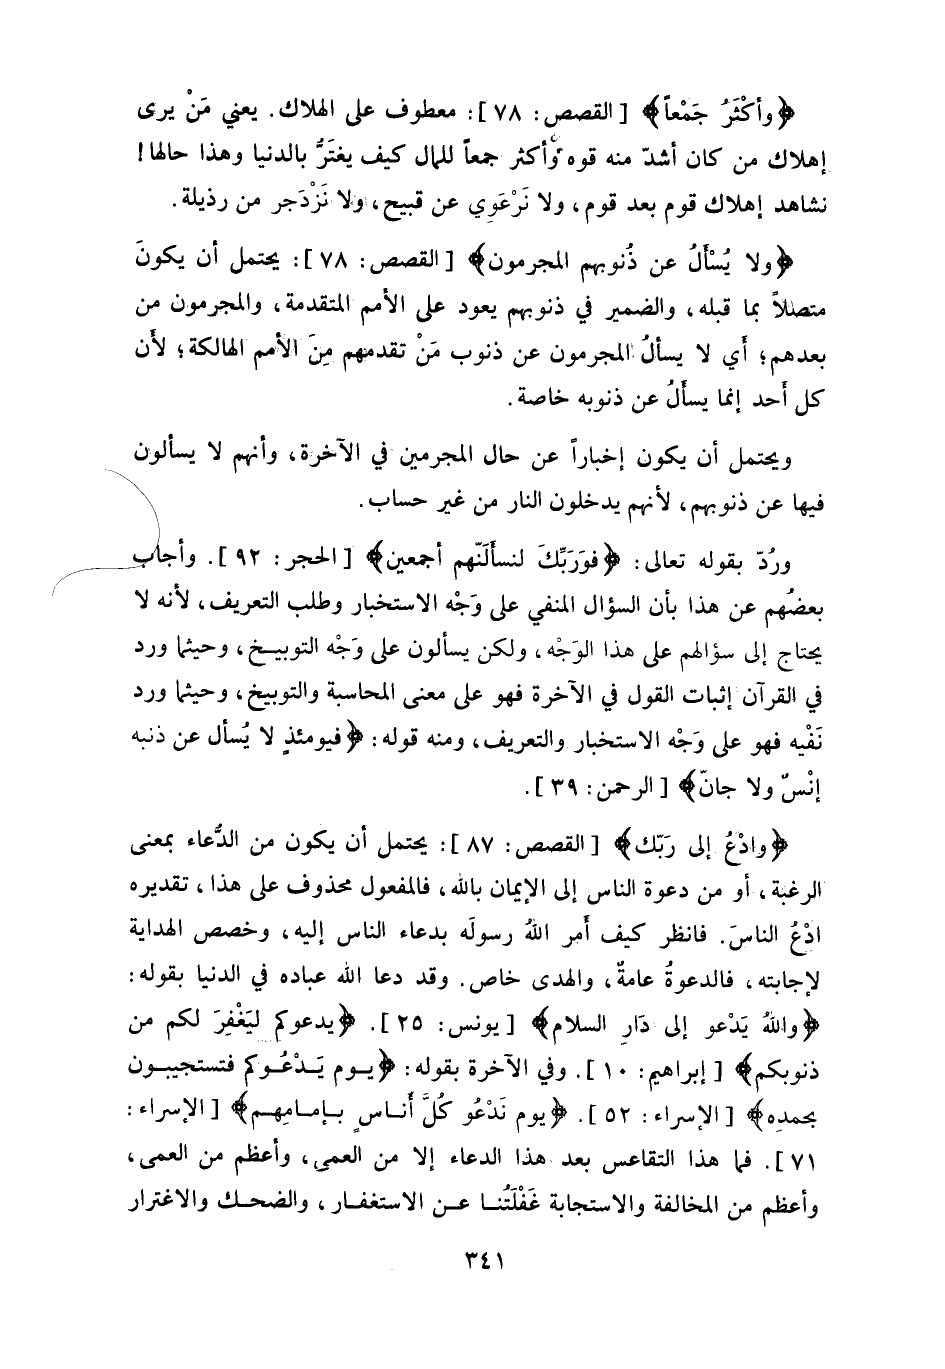 ﴿وأكْثَرُ جَمْعاً﴾ [القصص: ٧٨]: معطوف على الهلاك. يعني مَنْ يرى
إهلاك من كان أشدّ منه قوه وأكثر جمعاً للمال كيف يغتَرُّ بالدنيا وهذا حالها!
نشاهد إهلاك قوم بعد قوم، ولا نَرْعَوِي عن قبيح، ولا نَزْدَجر من رذيلة.
﴿ولا يُسْأَلُ عن ذُنوبهم المجرمون﴾ [القصص: ٧٨]: يحتمل أن يكونَ
متصلاً بما قبله، والضمير في ذنوبهم يعود على الأمم المتقدمة، والمجرمون من
بعدهم؛ أَي لا يسألُ المجرمون عن ذنوب مَنْ تقدمهم مِنَ الأمم الهالكة؛ لأَن
كل أَحد إنما يسأَلُ عن ذنوبه خاصة.
ويحتمل أن يكون إخباراً عن حال المجرمين في الآخرة، وأنهم لا يسألون
فيها عن ذنوبهم، لأنهم يدخلون النار من غير حساب.
ورُدّ بقوله تعالى: ﴿فوَرَبِّكَ لنسأَلَنّهم أجمعين﴾ [الحجر: ٩٢]. وأجاب
بعضُهم عن هذا بأن السؤال المنفي على وَجْه الاستخبار وطلب التعريف، لأنه لا
يحتاج إلى سؤالهم على هذا الوَجْه، ولكن يسألون على وَجْه التوبيخ، وحيثما ورد
في القرآن إثبات القول في الآخرة فهو على معنى المحاسبة والتوبيخ، وحيثما ورد
نَفْيه فهو على وَجْه الاستخبار والتعريف، ومنه قوله: ﴿فيومئذٍ لا يُسأل عن ذنبه
إنْسٌ ولا جانّ﴾ [الرحمن: ٣٩].
﴿وادْعُ إلى رَبِّك﴾ [القصص: ٨٧]: يحتمل أن يكون من الدُّعاء بمعنى
الرغبة، أو من دعوة الناس إلى الإيمان بالله، فالمفعول محذوف على هذا، تقديره
ادْعُ الناسَ. فانظر كيف أَمر اللهُ رسولَه بدعاء الناس إليه، وخصص الهداية
لإجابته، فالدعوةُ عامةٌ، والهدى خاص. وقد دعا الله عباده في الدنيا بقوله:
﴿واللهُ يَدْعو إلى دَارِ السلام﴾ [يونس: ٢٥]. ﴿يدعوكم ليَغْفِرَ لكم من
ذنوبكم﴾ [إبراهيم: ١٠]. وفي الآخرة بقوله: ﴿يوم يَدْعُوكم فتستجيبون
بحمده﴾ [الإسراء: ٥٢]. ﴿يوم نَدْعُو كُلَّ أُناسٍ بإمامِهم﴾ [الإسراء:
٧١]. فما هذا التقاعس بعد هذا الدعاء إلا من العمى، وأعظم من العمى،
وأعظم من المخالفة والاستجابة غَفْلَتُنا عن الاستغفار، والضحك والاغترار
٣٤١